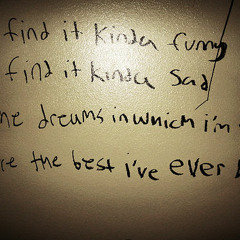 find it kinda funny
find it kinda sad
dreams in which i'm
the best i've ever